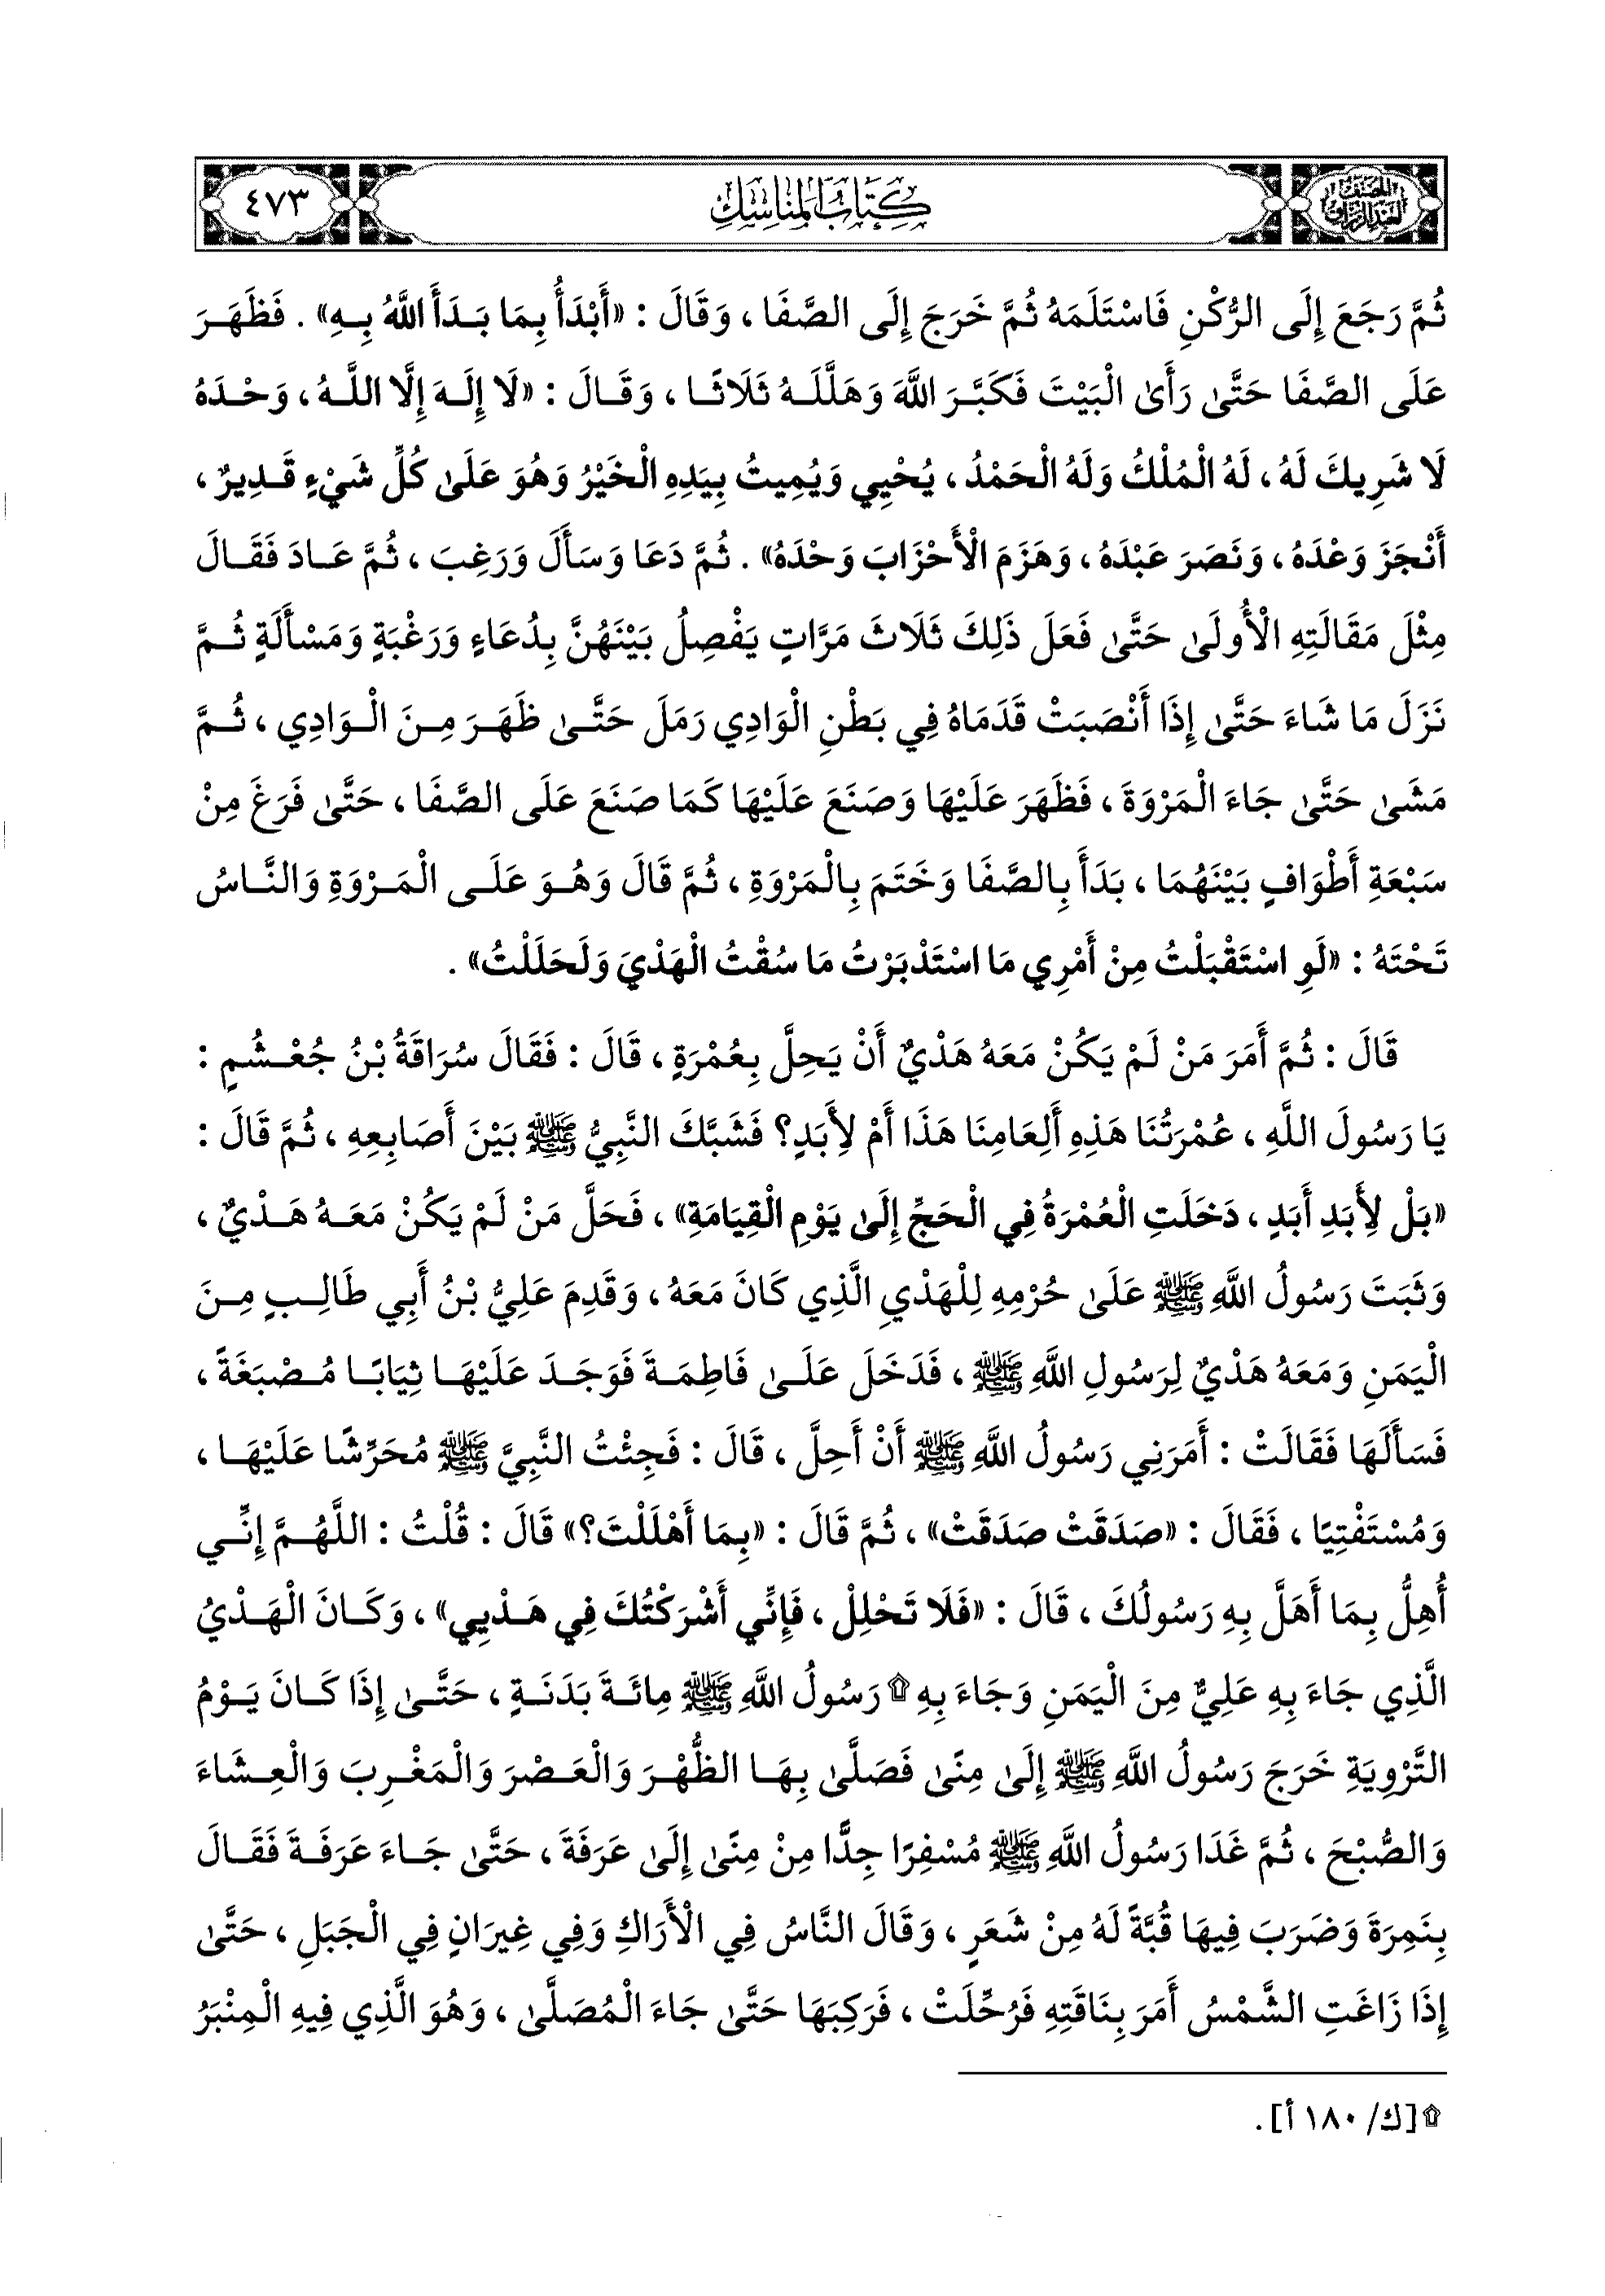 المصنف لعبد الرزاق
كتاب المناسك
٤٧٣
ثُمَّ رَجَعَ إِلَى الرُّكْنِ فَاسْتَلَمَهُ ثُمَّ خَرَجَ إِلَى الصَّفَا ، وَقَالَ : «أَبْدَأُ بِمَا بَدَأَ اللَّهُ بِهِ» . فَظَهَرَ
عَلَى الصَّفَا حَتَّىٰ رَأَىٰ الْبَيْتَ فَكَبَّرَ اللَّهَ وَهَلَّلَهُ ثَلَاثًا ، وَقَالَ : «لَا إِلَهَ إِلَّا اللَّهُ ، وَحْدَهُ
لَا شَرِيكَ لَهُ ، لَهُ الْمُلْكُ وَلَهُ الْحَمْدُ ، يُحْيِي وَيُمِيتُ بِيَدِهِ الْخَيْرُ وَهُوَ عَلَىٰ كُلِّ شَيْءٍ قَدِيرٌ ،
أَنْجَزَ وَعْدَهُ ، وَنَصَرَ عَبْدَهُ ، وَهَزَمَ الْأَحْزَابَ وَحْدَهُ» . ثُمَّ دَعَا وَسَأَلَ وَرَغِبَ ، ثُمَّ عَادَ فَقَالَ
مِثْلَ مَقَالَتِهِ الْأُولَىٰ حَتَّىٰ فَعَلَ ذَلِكَ ثَلَاثَ مَرَّاتٍ يَفْصِلُ بَيْنَهُنَّ بِدُعَاءٍ وَرَغْبَةٍ وَمَسْأَلَةٍ ثُمَّ
نَزَلَ مَا شَاءَ حَتَّىٰ إِذَا أَنْصَبَتْ قَدَمَاهُ فِي بَطْنِ الْوَادِي رَمَلَ حَتَّىٰ ظَهَرَ مِنَ الْوَادِي ، ثُمَّ
مَشَىٰ حَتَّىٰ جَاءَ الْمَرْوَةَ ، فَظَهَرَ عَلَيْهَا وَصَنَعَ عَلَيْهَا كَمَا صَنَعَ عَلَى الصَّفَا ، حَتَّىٰ فَرَغَ مِنْ
سَبْعَةِ أَطْوَافٍ بَيْنَهُمَا ، بَدَأَ بِالصَّفَا وَخَتَمَ بِالْمَرْوَةِ ، ثُمَّ قَالَ وَهُوَ عَلَى الْمَرْوَةِ وَالنَّاسُ
تَحْتَهُ : «لَوِ اسْتَقْبَلْتُ مِنْ أَمْرِي مَا اسْتَدْبَرْتُ مَا سُقْتُ الْهَدْيَ وَلَحَلَلْتُ» .
قَالَ : ثُمَّ أَمَرَ مَنْ لَمْ يَكُنْ مَعَهُ هَدْيٌ أَنْ يَحِلَّ بِعُمْرَةٍ ، قَالَ : فَقَالَ سُرَاقَةُ بْنُ جُعْشُمٍ :
يَا رَسُولَ اللَّهِ ، عُمْرَتُنَا هَذِهِ أَلِعَامِنَا هَذَا أَمْ لِأَبَدٍ؟ فَشَبَّكَ النَّبِيُّ ﷺ بَيْنَ أَصَابِعِهِ ، ثُمَّ قَالَ :
«بَلْ لِأَبَدِ أَبَدٍ ، دَخَلَتِ الْعُمْرَةُ فِي الْحَجِّ إِلَىٰ يَوْمِ الْقِيَامَةِ» ، فَحَلَّ مَنْ لَمْ يَكُنْ مَعَهُ هَدْيٌ ،
وَثَبَتَ رَسُولُ اللَّهِ ﷺ عَلَىٰ حُرْمِهِ لِلْهَدْيِ الَّذِي كَانَ مَعَهُ ، وَقَدِمَ عَلِيُّ بْنُ أَبِي طَالِبٍ مِنَ
الْيَمَنِ وَمَعَهُ هَدْيٌ لِرَسُولِ اللَّهِ ﷺ ، فَدَخَلَ عَلَىٰ فَاطِمَةَ فَوَجَدَ عَلَيْهَا ثِيَابًا مُصْبَغَةً ،
فَسَأَلَهَا فَقَالَتْ : أَمَرَنِي رَسُولُ اللَّهِ ﷺ أَنْ أَحِلَّ ، قَالَ : فَجِئْتُ النَّبِيَّ ﷺ مُحَرِّشًا عَلَيْهَا ،
وَمُسْتَفْتِيًا ، فَقَالَ : «صَدَقَتْ صَدَقَتْ» ، ثُمَّ قَالَ : «بِمَا أَهْلَلْتَ؟» قَالَ : قُلْتُ : اللَّهُمَّ إِنِّي
أُهِلُّ بِمَا أَهَلَّ بِهِ رَسُولُكَ ، قَالَ : «فَلَا تَحْلِلْ ، فَإِنِّي أَشْرَكْتُكَ فِي هَدْيِي» ، وَكَانَ الْهَدْيُ
الَّذِي جَاءَ بِهِ عَلِيٌّ مِنَ الْيَمَنِ وَجَاءَ بِهِ ۩ رَسُولُ اللَّهِ ﷺ مِائَةَ بَدَنَةٍ ، حَتَّىٰ إِذَا كَانَ يَوْمُ
التَّرْوِيَةِ خَرَجَ رَسُولُ اللَّهِ ﷺ إِلَىٰ مِنًىٰ فَصَلَّىٰ بِهَا الظُّهْرَ وَالْعَصْرَ وَالْمَغْرِبَ وَالْعِشَاءَ
وَالصُّبْحَ ، ثُمَّ غَدَا رَسُولُ اللَّهِ ﷺ مُسْفِرًا جِدًّا مِنْ مِنًىٰ إِلَىٰ عَرَفَةَ ، حَتَّىٰ جَاءَ عَرَفَةَ فَقَالَ
بِنَمِرَةَ وَضَرَبَ فِيهَا قُبَّةً لَهُ مِنْ شَعَرٍ ، وَقَالَ النَّاسُ فِي الْأَرَاكِ وَفِي غِيرَانٍ فِي الْجَبَلِ ، حَتَّىٰ
إِذَا زَاغَتِ الشَّمْسُ أَمَرَ بِنَاقَتِهِ فَرُحِّلَتْ ، فَرَكِبَهَا حَتَّىٰ جَاءَ الْمُصَلَّىٰ ، وَهُوَ الَّذِي فِيهِ الْمِنْبَرُ
۩ [ك/ ١٨٠ أ] .